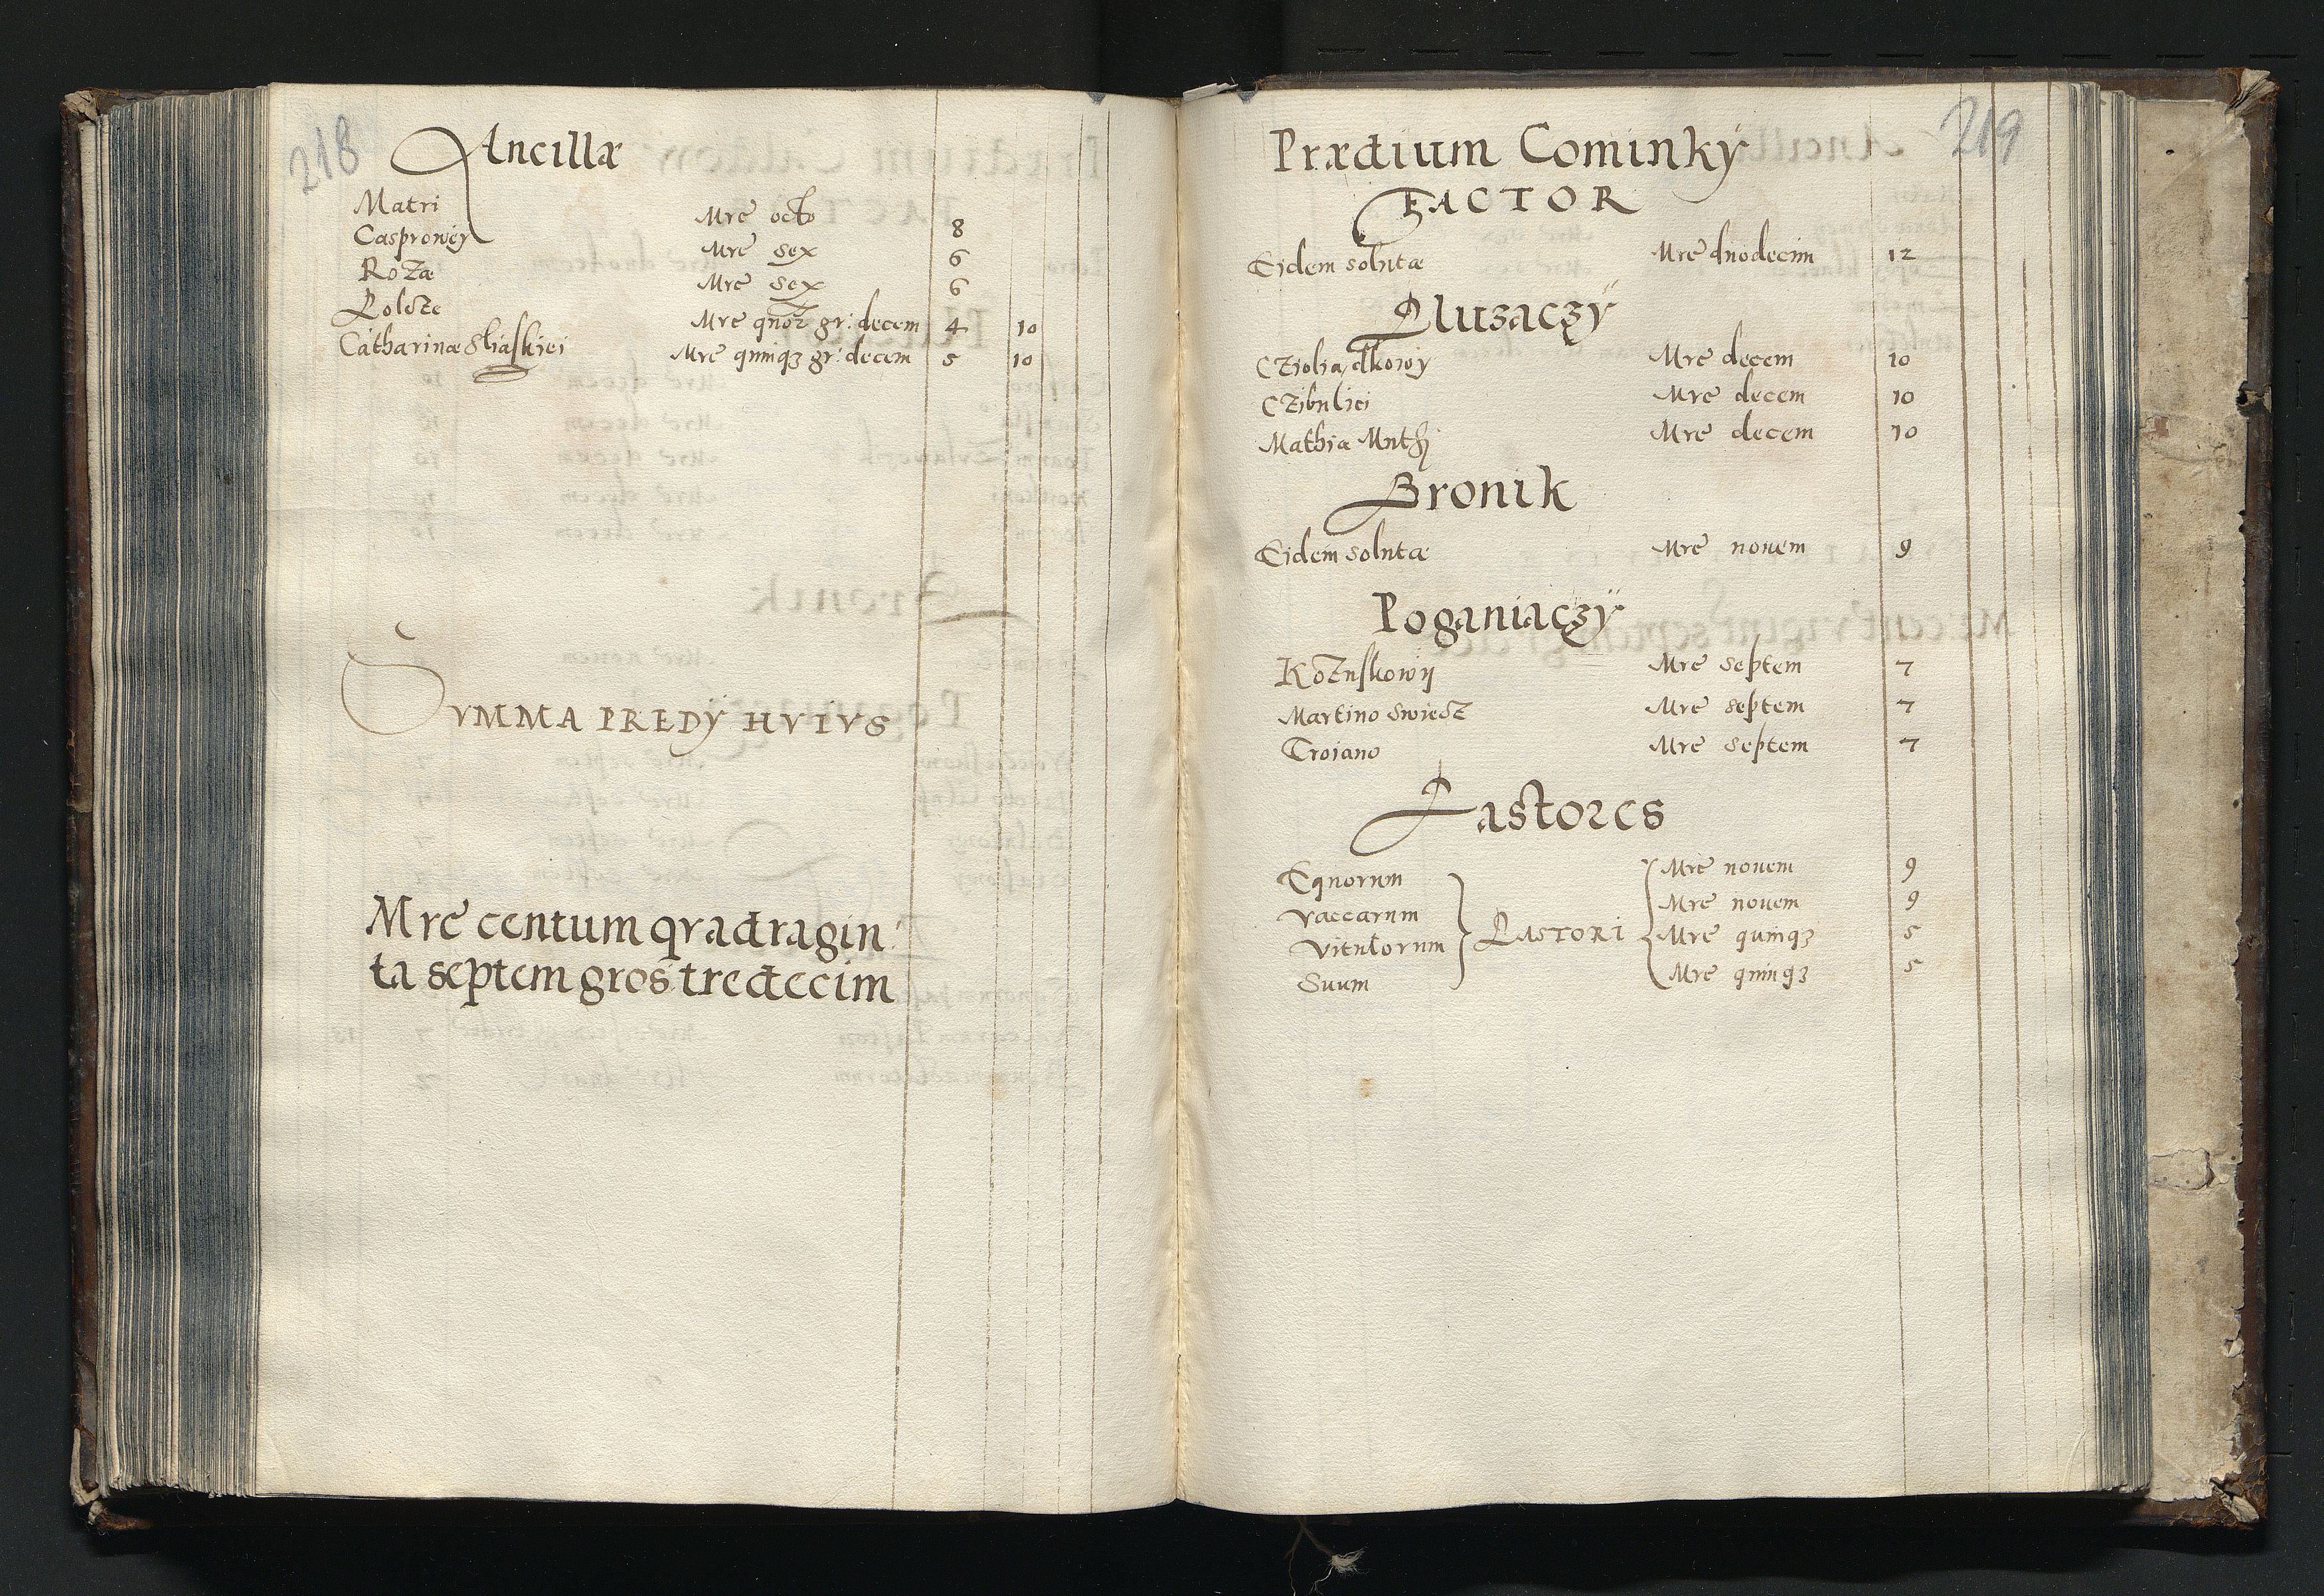 218
Ancillæ
Matri Mre octo 8
Casprowey Mre sex 6
Rozæ Mre sex 6
Mre quot gr: decem 4 10
Catharinæ Sliaskiei Mre quinqꝫ gr: decem 5 10
SVMMA PREDY HVIVS
Mre centum qvadragin:
ta septem gros tredecim
219
Prædium Cominkÿ
FACTOR
Eidem solutæ Mre duodecim 12
Pluzaczÿ
Mre decem 10
Czibulici Mre decem 10
Mathiæ Mre decem 10
Bronik
Eidem solutæ Mre nouem 9
Poganiaczÿ
Kozuskowij Mre septem 7
Martino Swiesz Mre septem 7
Troiano Mre septem 7
Pastores
Equorum Mre nouem 9
Vaccarum Mre nouem 9
Vitulorum PASTORI Mre quinqꝫ 5
Suum Mre quinqꝫ 5